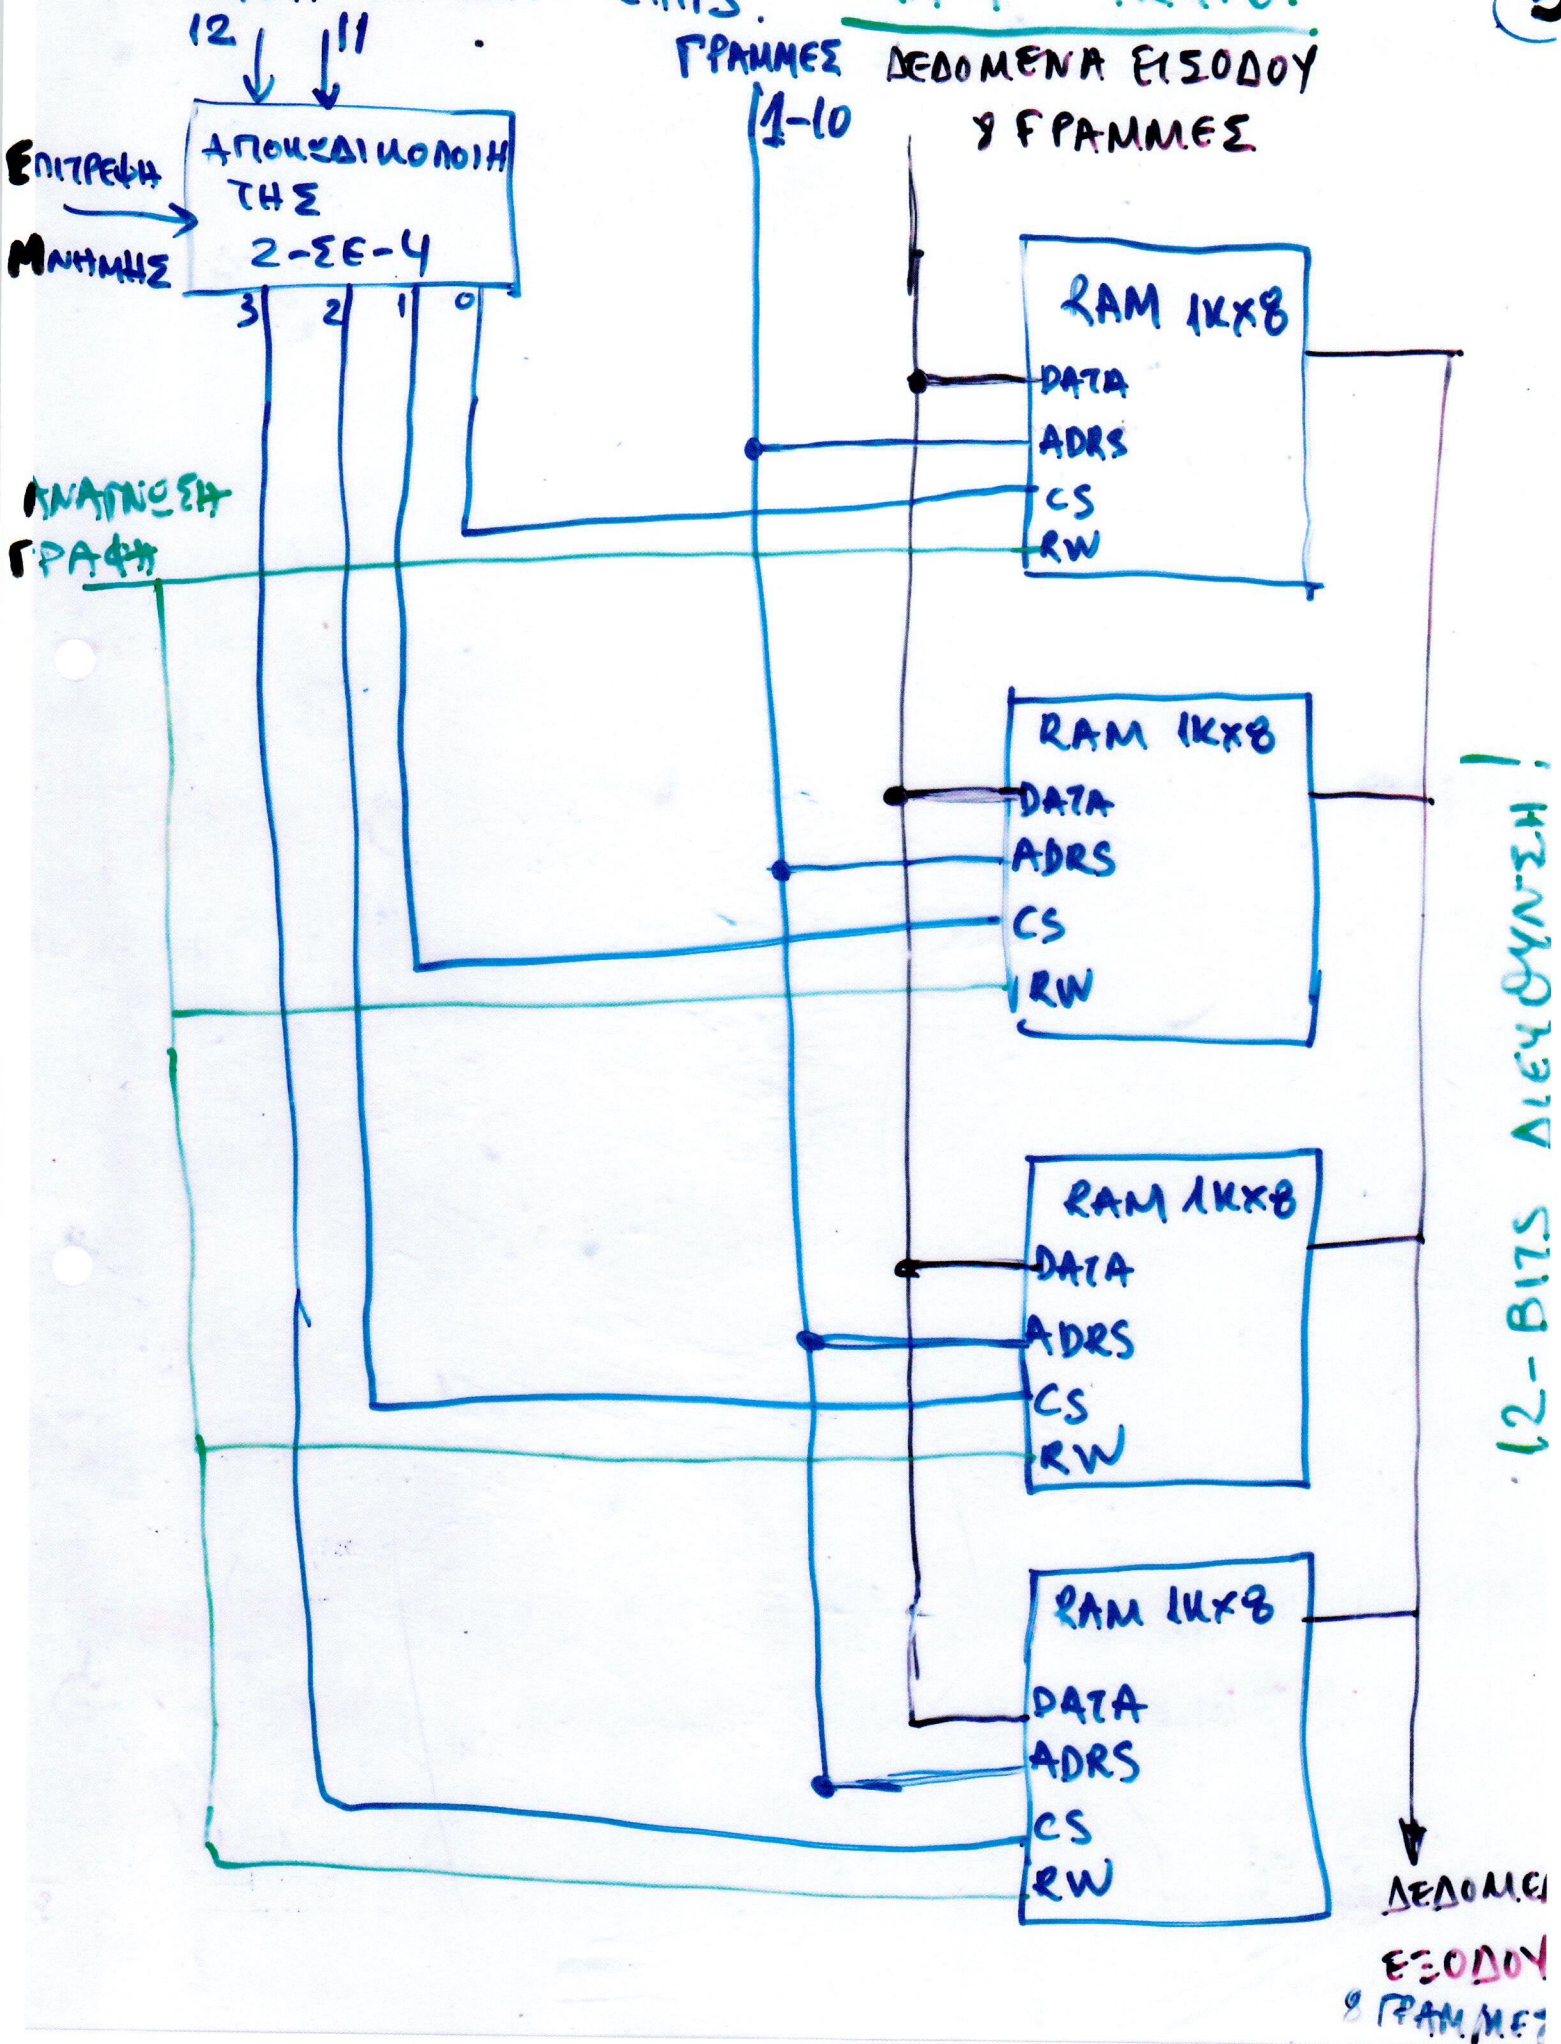 12 11
ΓΡΑΜΜΕΣ
1-10
ΔΕΔΟΜΕΝΑ ΕΙΣΟΔΟΥ
8 ΓΡΑΜΜΕΣ
ΕΠΙΤΡΕΨΗ
ΜΝΗΜΗΣ
ΑΠΟΚΩΔΙΚΟΠΟΙΗ
ΤΗΣ
2-ΣΕ-4
3 2 1 0
ΑΝΑΓΝΩΣΗ
ΓΡΑΦΗ
RAM 1K×8
DATA
ADRS
CS
RW
RAM 1K×8
DATA
ADRS
CS
RW
RAM 1K×8
DATA
ADRS
CS
RW
RAM 1K×8
DATA
ADRS
CS
RW
12-BITS ΔΙΕΥΘΥΝΣΗ!
ΔΕΔΟΜΕ
ΕΞΟΔΟΥ
8 ΓΡΑΜΜΕΣ